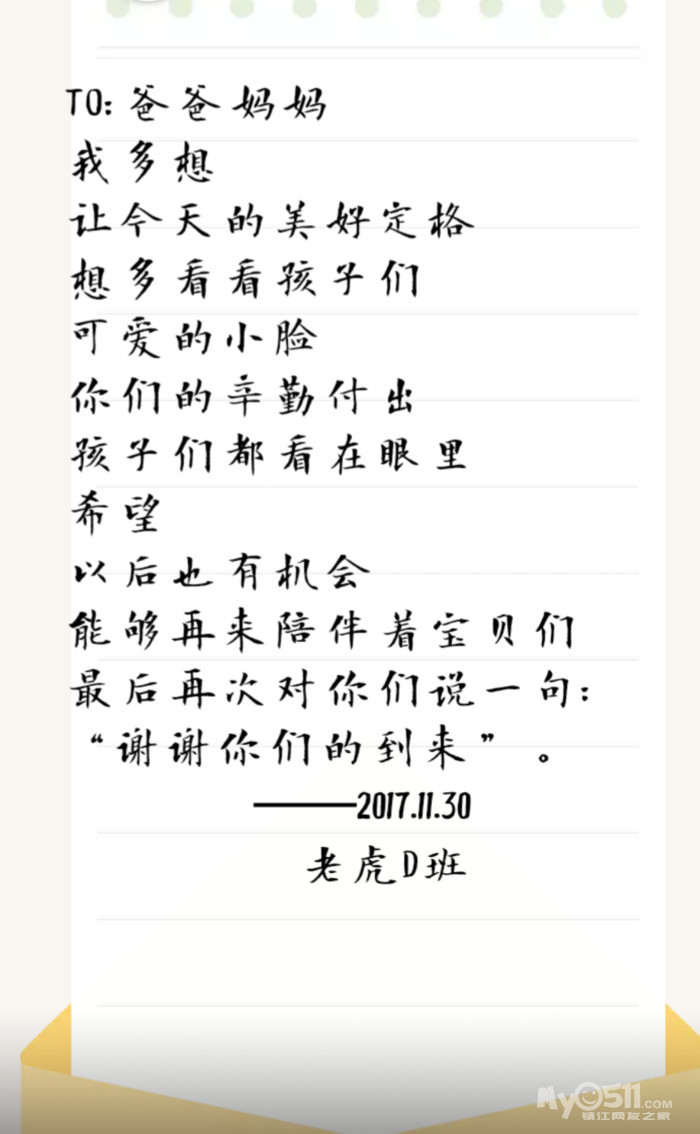 TO:爸爸妈妈
我多想
让今天的美好定格
想多看看孩子们
可爱的小脸
你们的辛勤付出
孩子们都看在眼里
希望
以后也有机会
能够再来陪伴着宝贝们
最后再次对你们说一句：
“谢谢你们的到来”。
———2017.11.30
老虎D班
My0511.COM
镇江网友之家